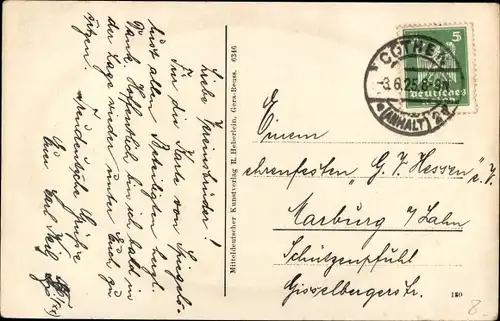 Liebe Vereinsbrüder!
Für die Karte von Spiegels-
lust allen Beteiligten herzl.
Dank. Hoffentlich bin ich bald in
der Lage wieder unter Euch zu
sitzen!
Treudeutsche Grüsse
Euer Carl
Mitteldeutscher Kunstverlag R. Heberlein, Gera-Reuss. 6346
5
Deutsches
CÖTHEN
-3.6.25.
(ANHALT)
Einem
ehrenfesten "G. V. Hessen" e. V.
Marburg a/Lahn
Schützenpfuhl
Gisselbergerstr.
180
8.-